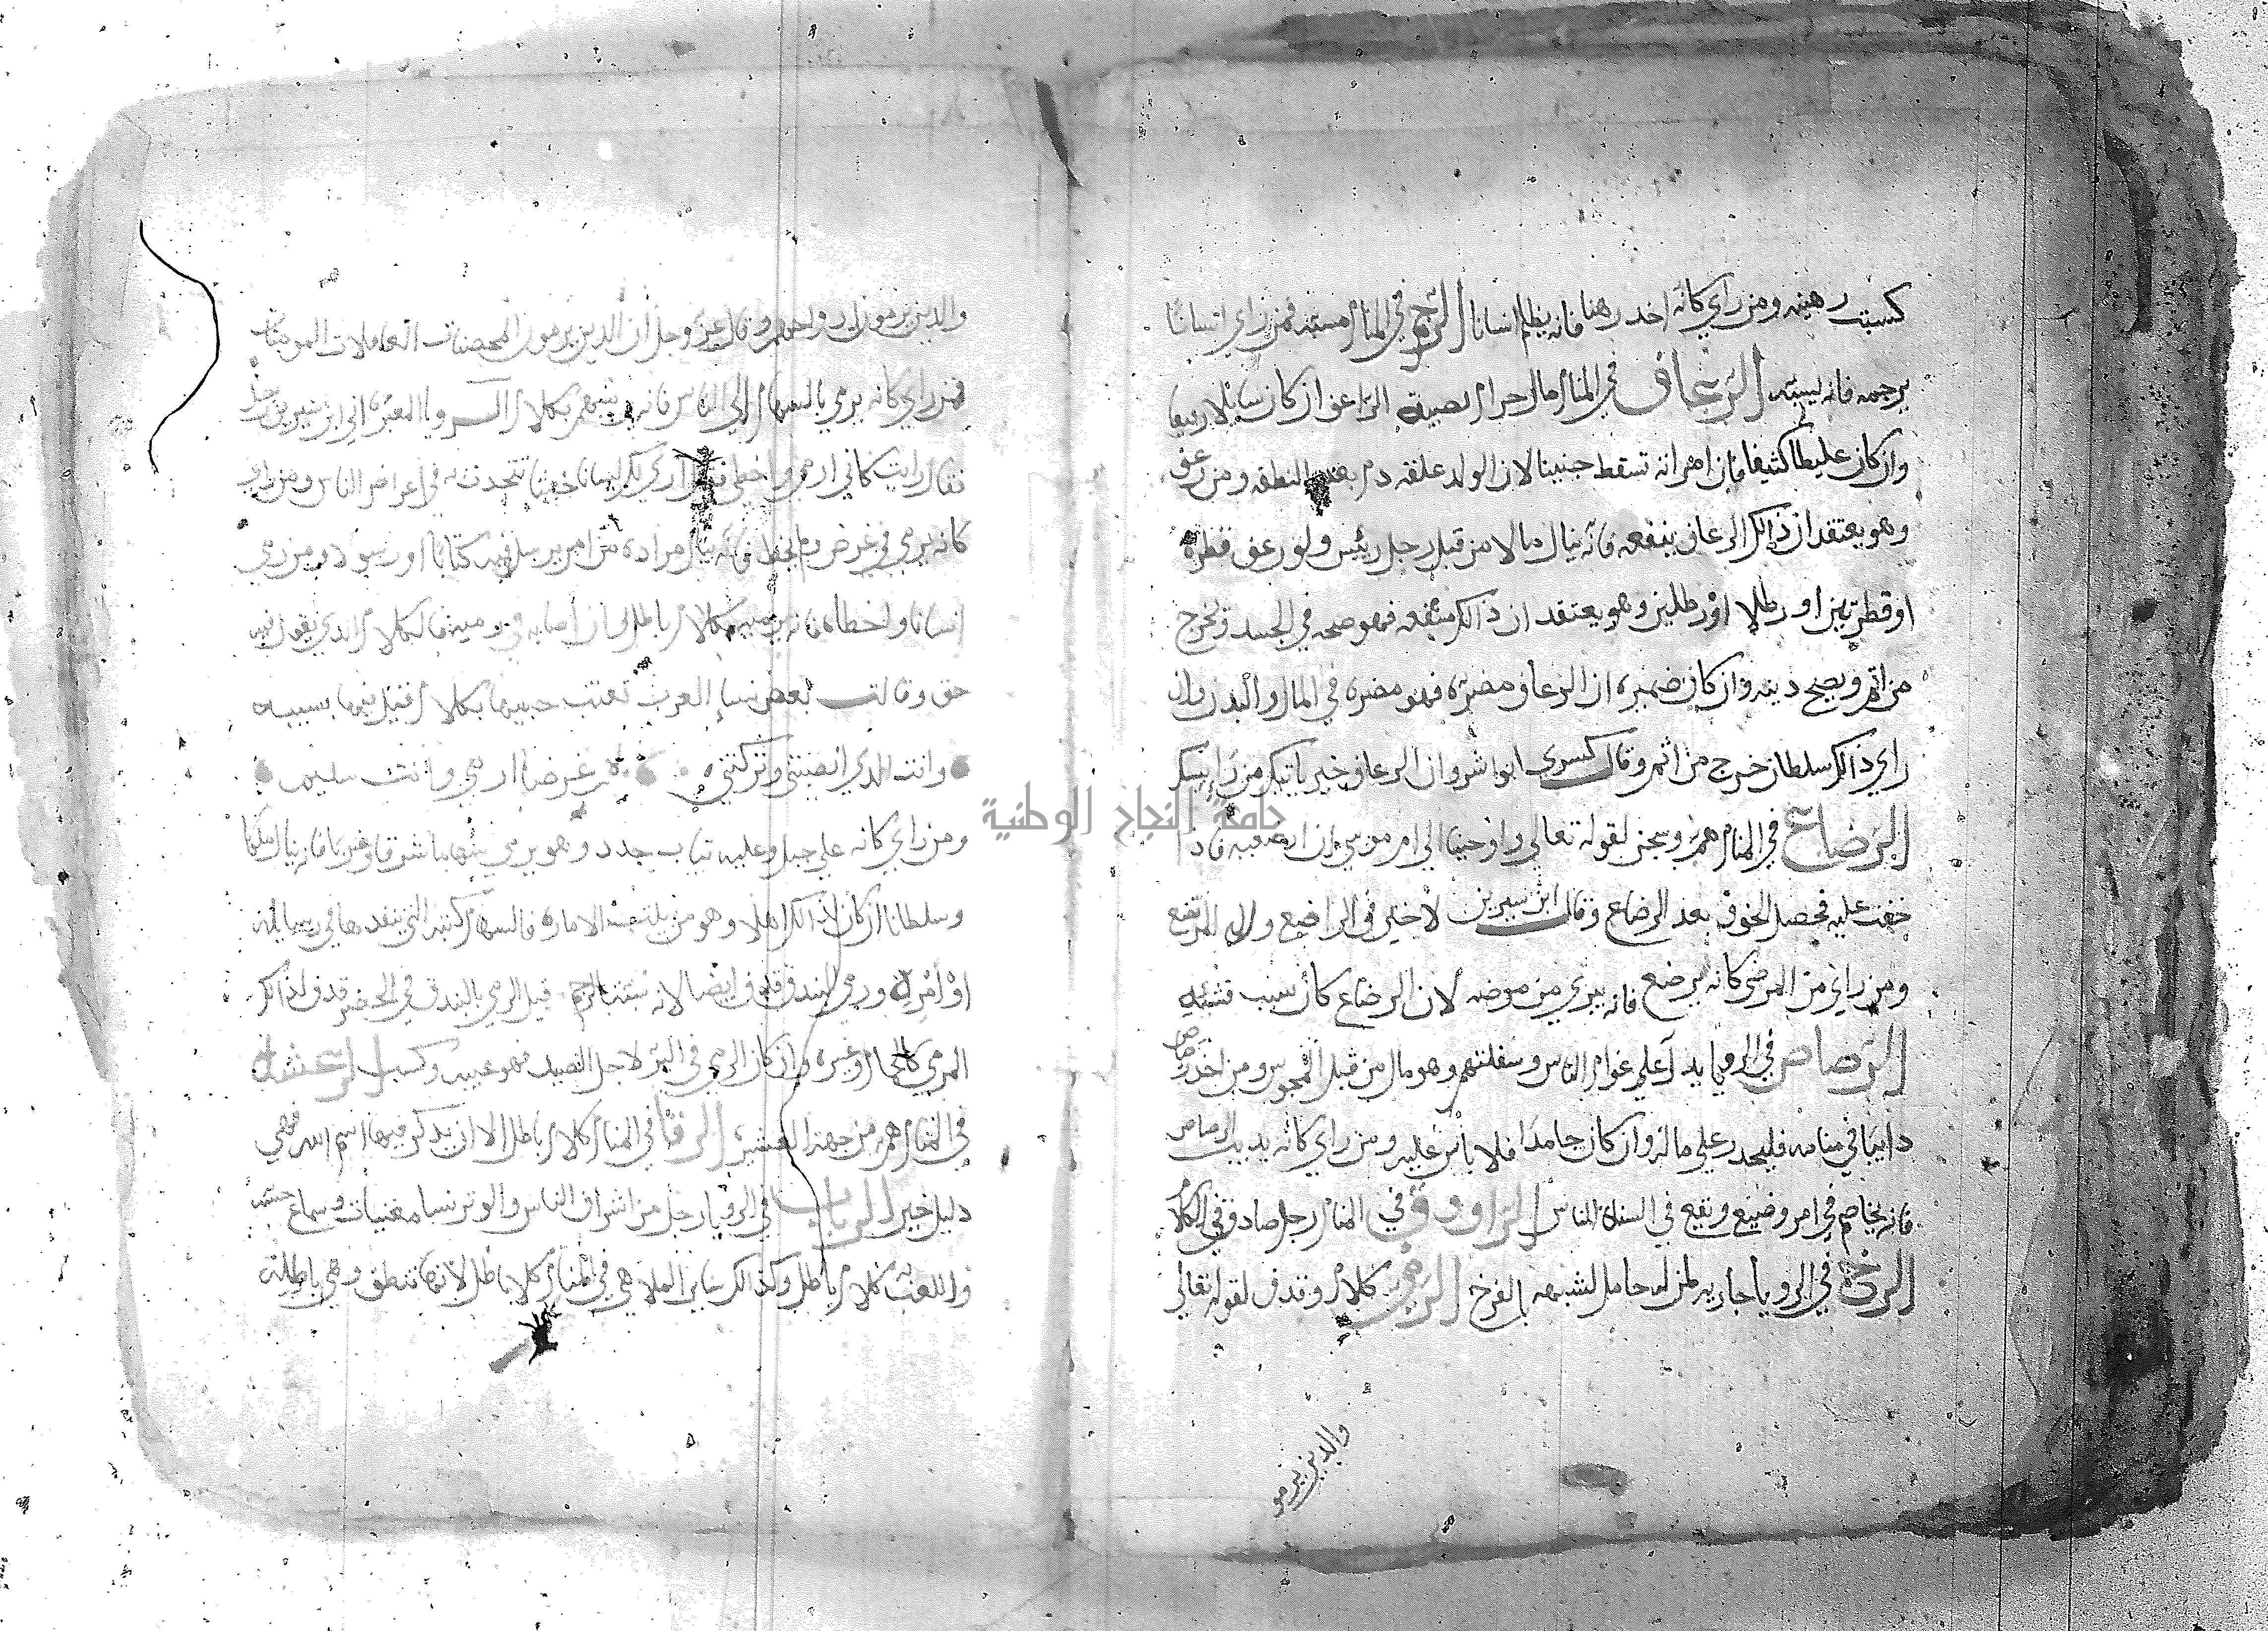 كسبت رهينه ومن راي كانه اخد رهنا فانه يظلم انسانا الرجم في المنام مسبّه فمن راي انسانا
يرجمه فانه يسبّه الرعاف في المنام مال حرام يصيبه الراعف ان كان سايلا رقيقا
وان كان غليظا كثيفا فان امراته تسقط جنينا لان الولد علقه دم بعد النطفه ومن رعف
وهو يعتقد ان ذالك الرعاف ينفعه فانه ينال مالا من قبل رجل رئيس ولو رعف قطره
او قطرتين او رطلا او رطلين وهو يعتقد ان ذالك منفعه فهو صحه في الجسد وتخرج
من اثم ويصح دينه وان كان ضميره ان الرعاف مضره فهو مضره في المال والبدن وان
راي ذالك سلطان خرج من اثم وقال كسري انوا شروان الرعاف خير ياتيك من رايسك
الرضاع في المنام همّ وسجن لقوله تعالي واوحينا الي ام موسي ان ارضعيه فاذا
خفت عليه فحصل الخوف بعد الرضاع وقال ابن سيرين لا خير في الراضع ولا المرتضع
ومن راي من المرضي كانه يرضع فانه يبري من مرضه لان الرضاع كان سبب نشئه
الرصاص في الرويا يدل علي عوام الناس وسفلتهم وهو مال من قبل المجوس ومن اخد رصاص
دايبا في منامه فليحدر علي ماله وان كان جامدا فلا باس عليه ومن راي كانه يديب الرصاص
فانه يخاصم في امر وضيع ويقع في السنة الناس الراووق في المنام رجل صادق في الكلام
الرخ في الرويا جاريه لمن له حامل لشبهه بالفرخ الرمي كلام وقدف لقوله تعالي
والدين يرمو
والدين يرمون ازواجهم وقال عزّ وجل ان الدين يرمون المحصنات الغافلات المومنات
فمن راي كانه يرمي بالسهام الي الناس فانه يتهمهم بكلام السر ويا المعبره اتي ابن سيرين رجل
فقال رايت كاني ارمي واخطي فقال اري لك لسانا خبيثا تتحدث به في اعراض الناس ومن راي
كانه يرمي في غرض ولم يخط فانه ينال مراده من امر يرسل فيه كتابا او رسولا ومن رمي
انسانا واخطاه فانه يرميه بكلام باطل وان اصابه في رميه فالكلام الدي يقول فيه
حق وقالت بعض نسا العرب تعتب حبيبها بكلام قيل فيها بسببه
وانت الدي انصبتني وتركتني لهم غرضا ارمي وانت سليم
ومن راي كانه علي جبل وعليه تياب جدد وهو يرمي سهاما شرقا وغربا فانه ينال ملكا
وسلطانا ان كان لذالك اهلا وهو من يلتمس الاماره فالسهام كتبه التي ينفدها في رسايله
او امره ورمي البندق قدف ايضا لانه يشبه الرجم قيل الرمي بالبندق في الحضر قدف لذالك
المرمي كالحمام وغيره وان كان الرمي في البر لاجل الصيد فهو غنيمه وكسب الرعشه
في المنام همّ من جهة العشيره الرقا في المنام كلام باطل الا ان يدكر فيها اسم الله فهي
دليل خير الرباب في الرويا رجل من اشراف الناس والوتر نسا مغنيات وسماع حسن
واللعب به كلام باطل وكذالك ساير الملاهي في المنام كلام باطل لانها تنطق وهي باطله
جامعة النجاح الوطنية